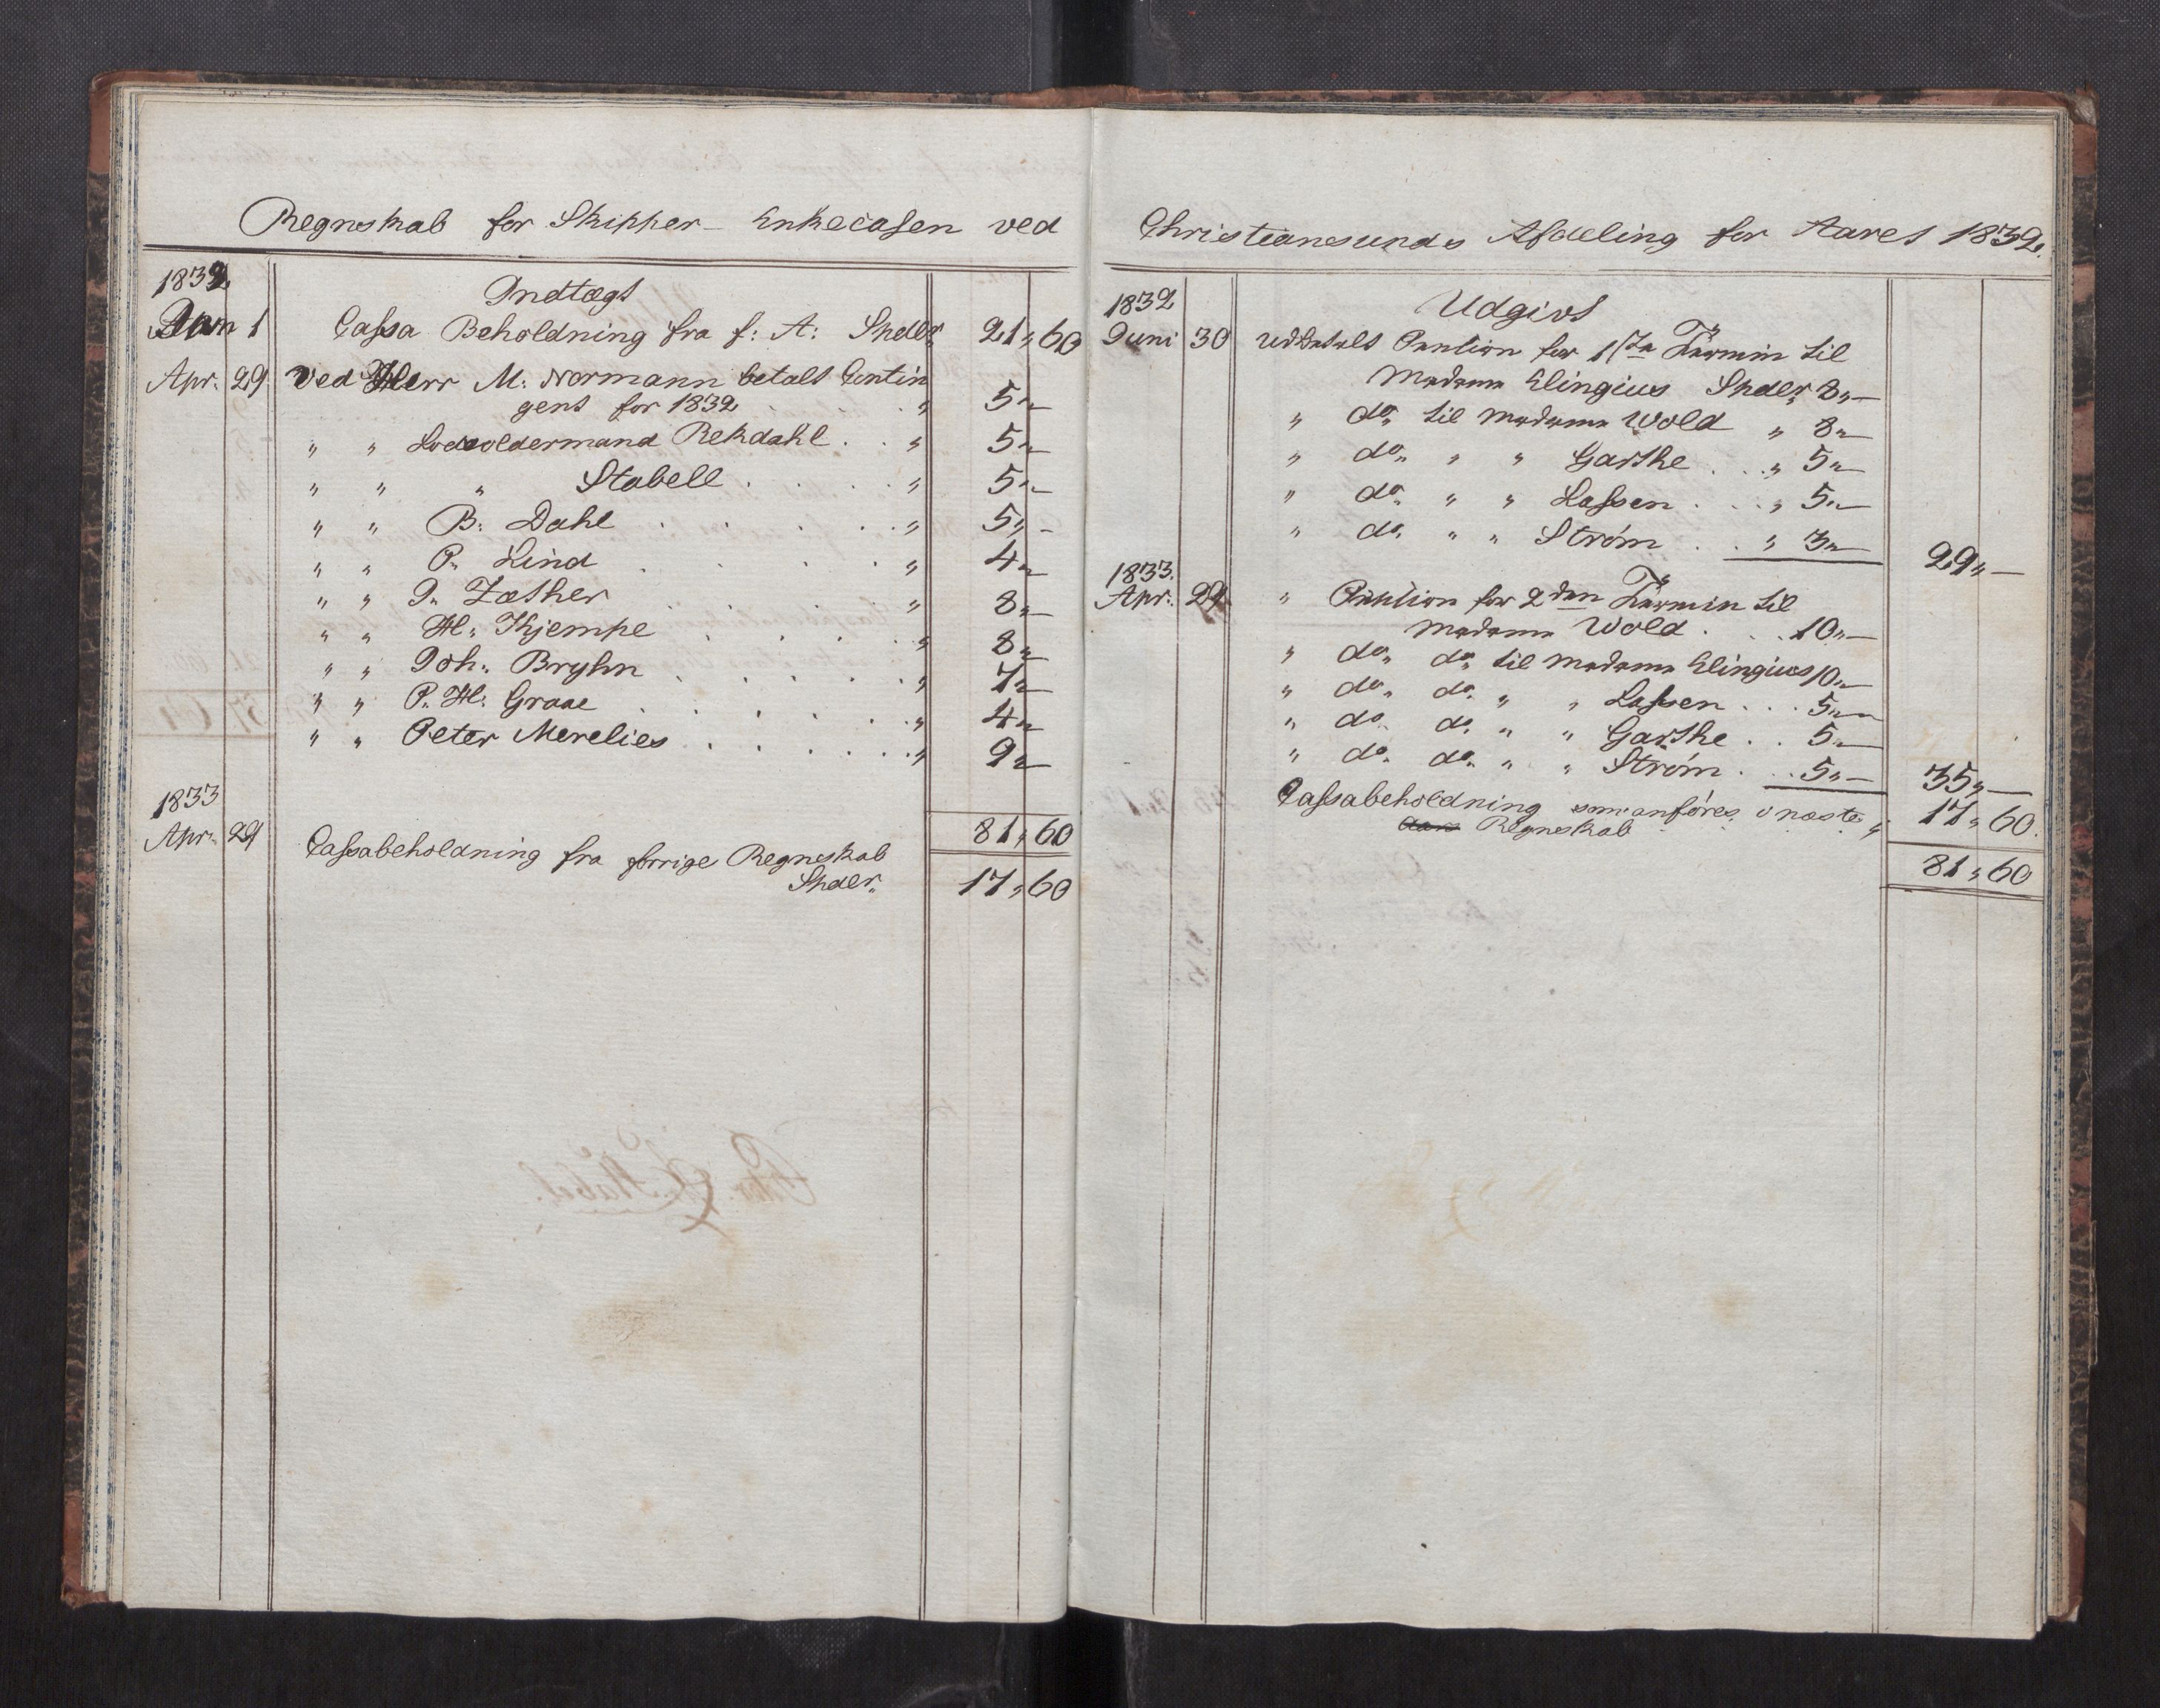 Regnskab for Skipper-Enkecasen ved
1832
Indtægt
Jan 1 Cassa Beholdning fra f: A: Spdlr 21 " 60
Apr. 29 Ved Herr M: Normann betalt Contin
gent for 1832 . . " 5 " —
" " Lodsoldermand Rekdahl . . " 5 " —
" " " Stabell . . . . " 5 " —
" " B: Dahl . . . . . " 5 " -
" " P. Lind . . . . " 4 " —
" " J. Zæther . . . " 8 " —
" " H. Kjempe . . . . . " 8 " —
" " Joh: Bryhn . . . . . " 7 " —
" " P. H: Graae . . . . . " 4 " —
" " Peter Merelies . . . . . . " 9 " —
1833
81 " 60
Apr. 29 Cassabeholdning fra forrige Regnskab
Spdlr. 17 " 60
Christiansunds Afdeling for Aaret 1832.
1832
Udgivt
Juni 30 Udbetalt Pention for 1ste Termin til
Madame Elingius Spdlr 8 " —
" do. til Madame Wold " 8 " —
" do. " " Garthe . . . " 5 " —
" do. " " Lassen . . . " 5 " —
" do. " " Strøm . . " 3 " — 29 " —
1833.
Apr. 29 " Pention for 2den Termin til
Madame Wold . . . 10 " —
" do. do. til Madame Elingius 10 " —
" do. do. " " Lassen . . . 5 " —
" do. do. " " Garthe . . 5 " —
" do. do. " " Strøm . . . 5 " — 35 " —
Cassabeholdning som anføres i næste
Regnskab . . . . . " 17 " 60.
81 " 60